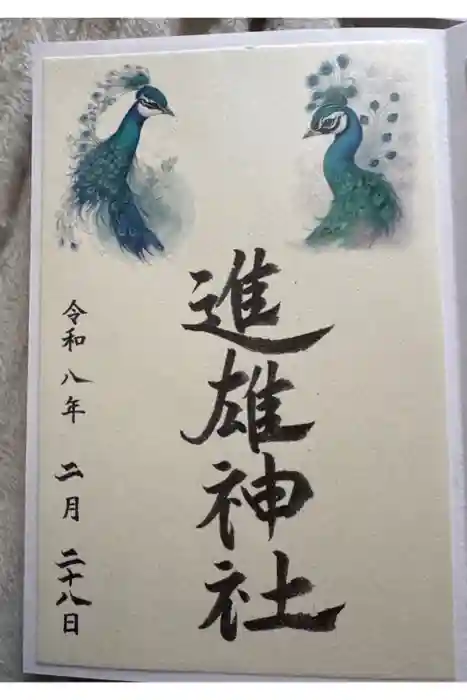 進雄神社
令和八年 二月 二十八日